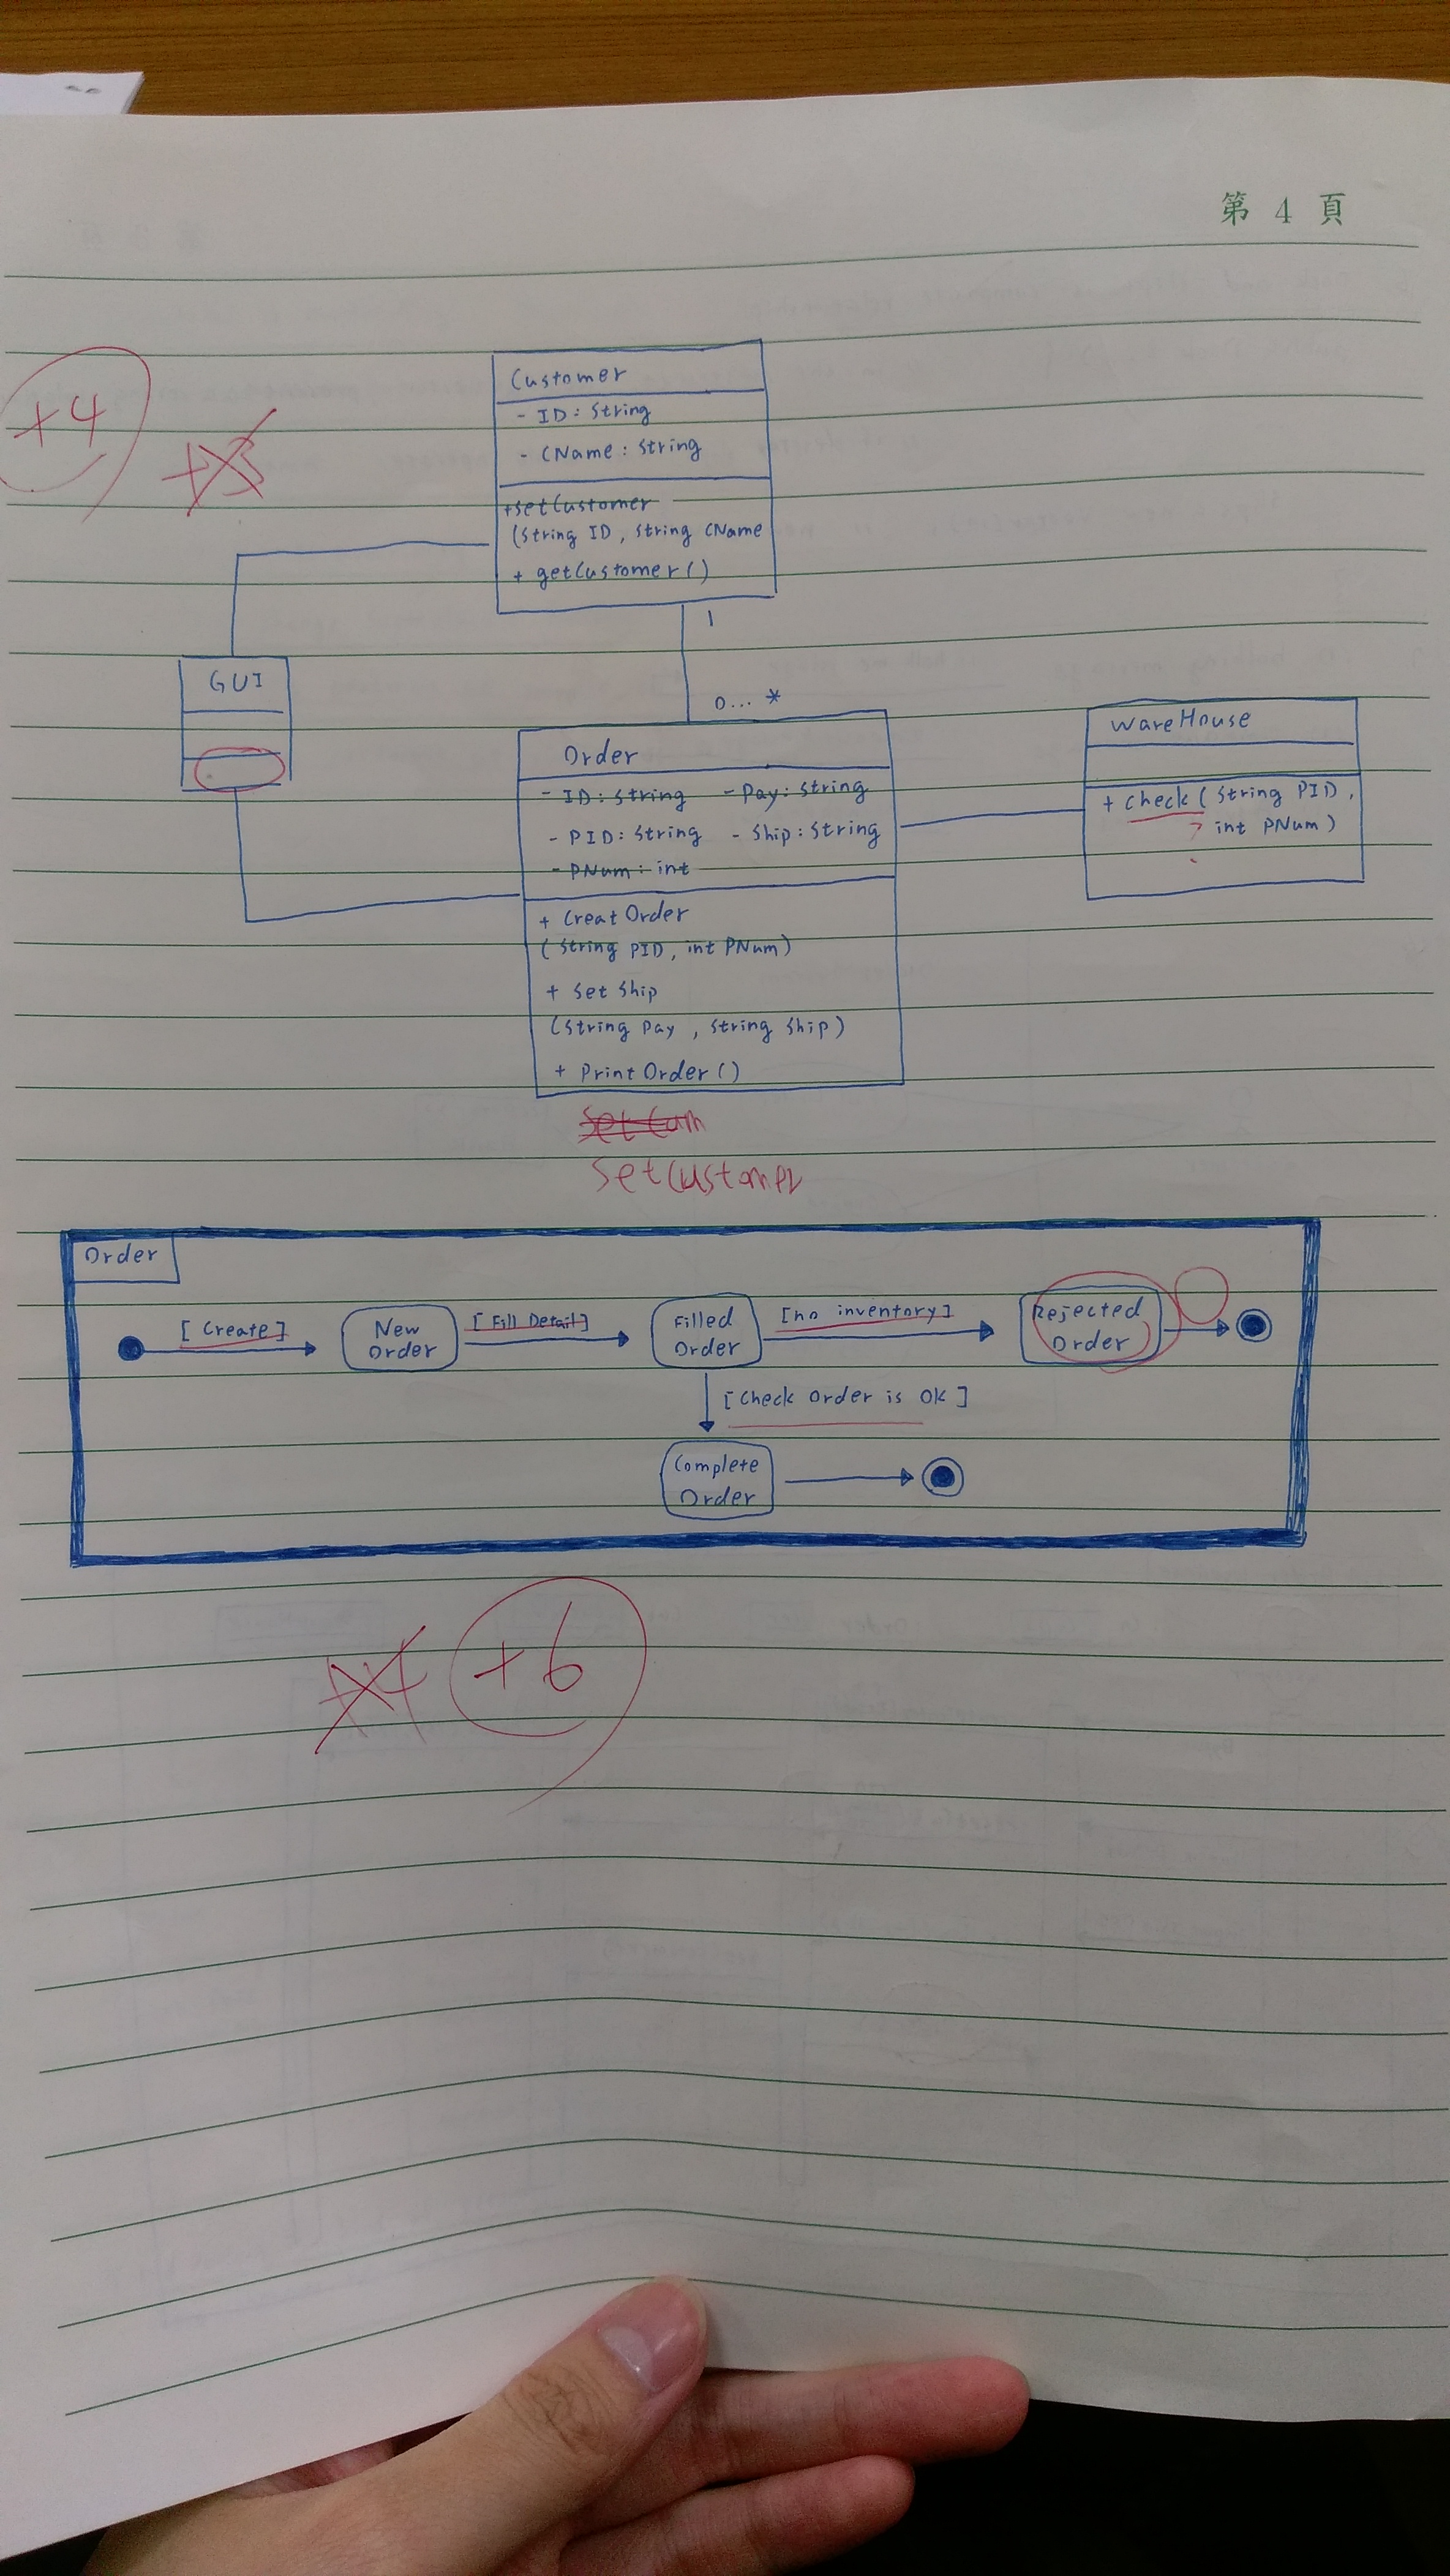 第 4 頁
+4
+3
Customer
- ID : String
- CName : String
+setCustomer
(String ID, String CName
+ getCustomer()
1
0... *
GUI
Order
- ID : String - Pay : String
- PID : String - Ship : String
- PNum : int
+ CreatOrder
(String PID, int PNum)
+ Set Ship
(String Pay, String Ship)
+ PrintOrder()
WareHouse
+ Check(String PID,
?
int PNum)
Set Cum
SetCustomer
Order
[Create]
New
Order
[Fill Detail]
Filled
Order
[no inventory]
Rejected
Order
[Check Order is OK]
Complete
Order
+4
+6